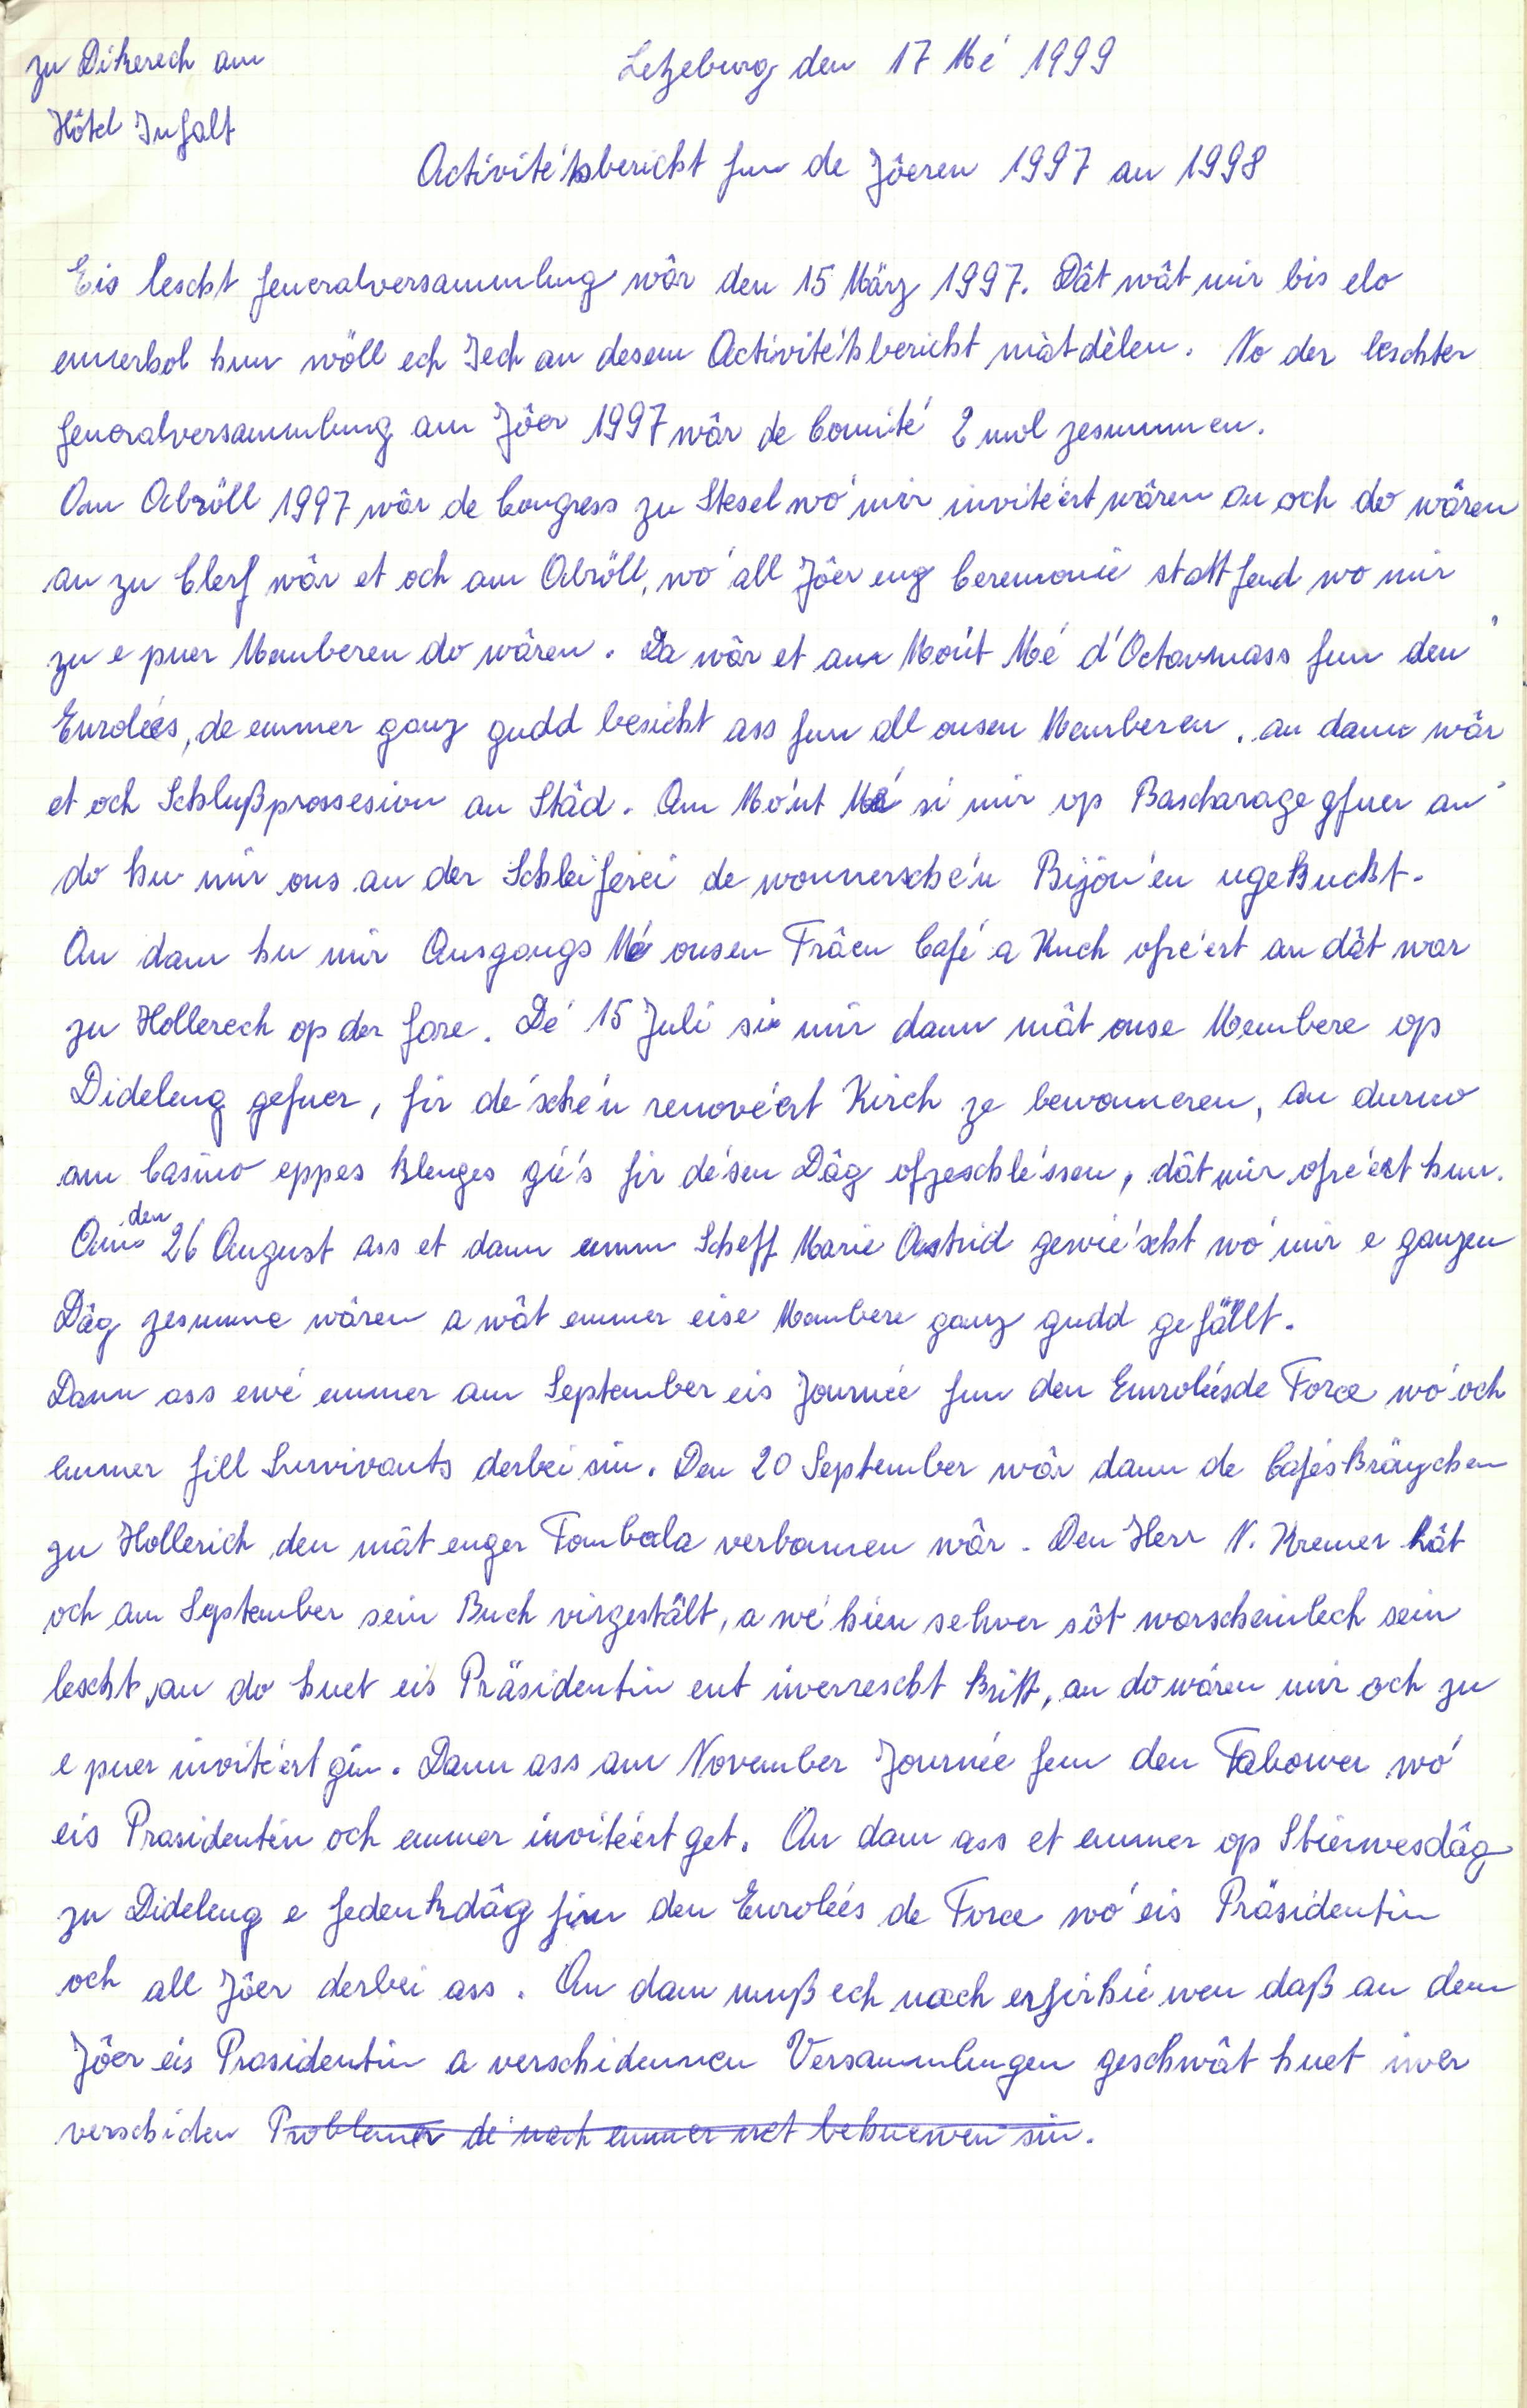 zu Dikerech am
Hôtel Infalt
Letzeburg den 17 Mé 1999
Activitéitsbericht fun de Jôeren 1997 an 1998
Eis lescht Generalversammlung wâr den 15 März 1997. Dât wât mir bis elo
ennerhol hun wöll ech Iech an desem Activitéitsbericht mât dèlen. No der leschter
Generalversammlung am Jôer 1997 wâr de Comité 2 mol zesummen.
Am Abröll 1997 wâr de Congress zu Stesel wó mir invitéiert wâren an och do wâren
an zu Clerf wâr et och am Abröll, wó all Jôer eng Ceremonie statt fend wo mir
zu e puer Memberen do wâren. Da wâr et am Móut Mé d'Octavmass fun den
Enrolées, de emmer ganz gudd besicht ass fun all onsen Memberen. an dann wâr
et och Schlußprossesion an Stâd. Am Móut Mé si mir op Bascharage gfuer an
do hu mir ons an der Schleiferei de wonnerschéin Bijouén ugekuckt.
An dann hu mir Ausgangs Mé onsen Frâen Café a Kuch ofréiert an dât war
zu Hollerech op der Gare. Dé 15 Juli si mir dann mât onse Membere op
Dideleng gefuer, fir dé schéin renovéiert Kirch ze bewonneren, an durno
am Casino eppes klenges giés fir désen Dâg ofzeschléissen, dât mir ofréiert hun.
Am den 26 August ass et dann emm Scheff Marie Astrid gewiescht wó mir e ganzen
Dâg zesumme wâren a wât emmer eise Membere ganz gudd gefällt.
Dann ass ewé emmer am September eis Journée fun den Enroléesde Force wó och
emmer fill Survivants derbei sin. Den 20 September wâr dann de Cafés kränzchen
zu Hollerich den mât enger Tombola verbonnen wâr. Den Herr N. Kremer hât
och am September sein Buch virgeställt, a wé hien selwer sôt warscheinlech sein
lescht, an do huet eis Präsidentin ent iwerrescht kritt, an do wâren mir och zu
e puer invitéiert gin. Dann ass am November Journée fun den Tabower wó
eis Prasidentin och emmer invitéiert get. An dann ass et emmer op Stiermesdâg
zu Dideleng e Gedenkdâg fun den Enrolées de Force wó eis Präsidentin
och all Jôer derbei ass. An dann muß ech noch erfirhiewen daß an dem
Jôer eis Prasidentin a verschidennen Versammlungen geschwât huet iwer
verschiden Problemer dé noch emmer net behuewen sin.